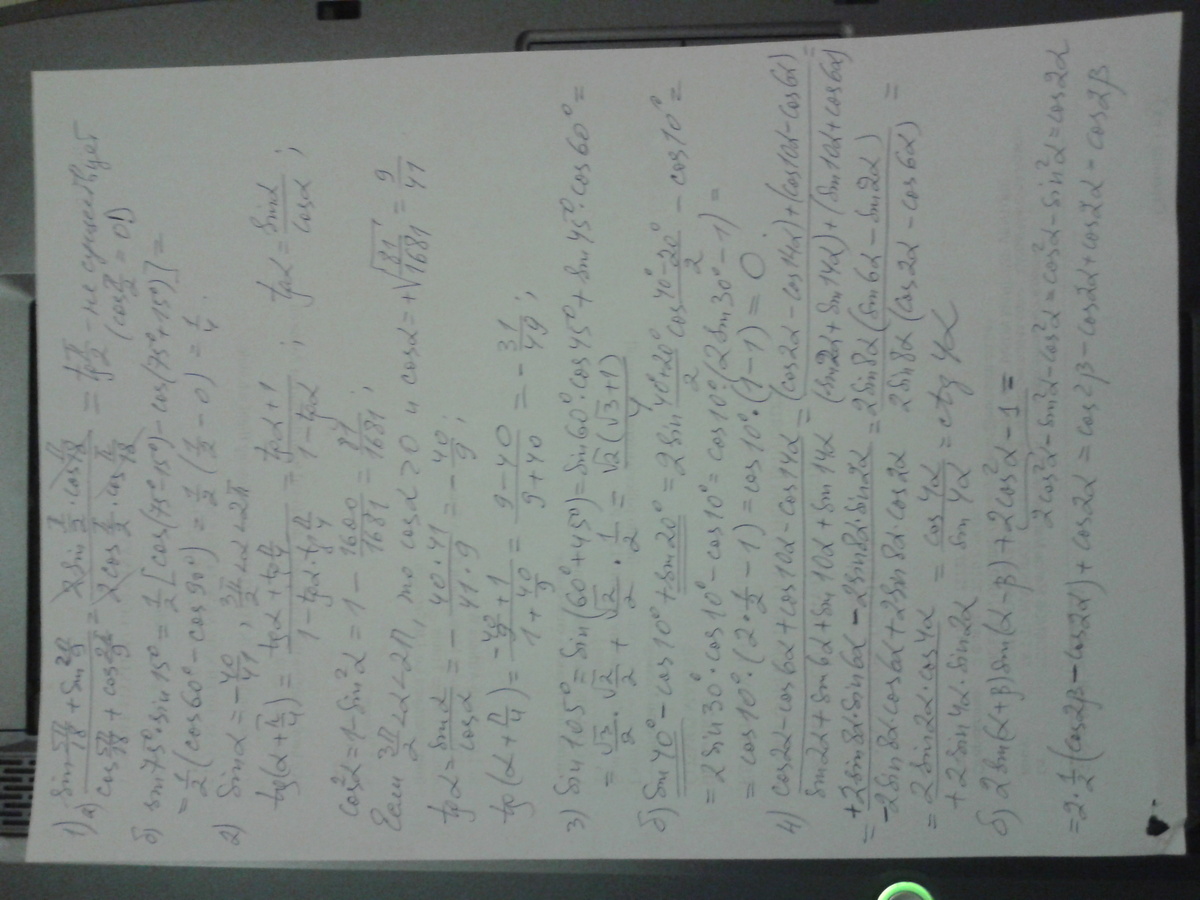 1) а) (sin 5π/18 + sin 2π/9)/(cos 5π/18 + cos 2π/9) = (2 sin π/2 · cos π/18)/(2 cos π/2 · cos π/18) = tg π/2 - не существует
(cos π/2 = 0!)
б) sin 75° · sin 15° = 1/2 [cos(75°-15°) - cos(75°+15°)] =
= 1/2 (cos 60° - cos 90°) = 1/2 (1/2 - 0) = 1/4.
2) sin α = -40/41, 3π/2 < α < 2π
tg(α + π/4) = (tg α + tg π/4)/(1 - tg α · tg π/4) = (tg α + 1)/(1 - tg α) ; tg α = sin α/cos α ;
cos²α = 1 - sin²α = 1 - 1600/1681 = 81/1681 ;
Если 3π/2 < α < 2π, то cos α > 0 и cos α = +√(81/1681) = 9/41
tg α = sin α/cos α = - (40 · 41)/(41 · 9) = - 40/9 ;
tg(α + π/4) = (-40/9 + 1)/(1 + 40/9) = (9 - 40)/(9 + 40) = - 31/49 ;
3) sin 105° = sin(60° + 45°) = sin 60° · cos 45° + sin 45° · cos 60° =
= √3/2 · √2/2 + √2/2 · 1/2 = √2(√3+1)/4
б) sin 40° - cos 10° + sin 20° = 2 sin (40°+20°)/2 cos (40°-20°)/2 - cos 10° =
= 2 sin 30° · cos 10° - cos 10° = cos 10° · (2 sin 30° - 1) =
= cos 10° · (2 · 1/2 - 1) = cos 10° · (1 - 1) = 0
4) (cos 2α - cos 6α + cos 10α - cos 14α)/(sin 2α + sin 6α + sin 10α + sin 14α) = ((cos 2α - cos 14α) + (cos 10α - cos 6α))/((sin 2α + sin 14α) + (sin 10α + cos 6α)) =
= (+2 sin 8α · sin 6α - 2 sin 8α · sin 2α)/(-2 sin 8α · cos 6α + 2 sin 8α · cos 2α) = 2 sin 8α (sin 6α - sin 2α)/2 sin 8α (cos 2α - cos 6α) =
= (2 sin 2α · cos 4α)/(+2 sin 4α · sin 2α) = cos 4α/sin 4α = ctg 4α
б) 2 sin(α+β) sin(α-β) + 2cos²α - 1 =
2cos²α - sin²α - cos²α = cos²α - sin²α = cos 2α
= 2 · 1/2 (cos 2β - cos 2α) + cos 2α = cos 2β - cos 2α + cos 2α = cos 2β